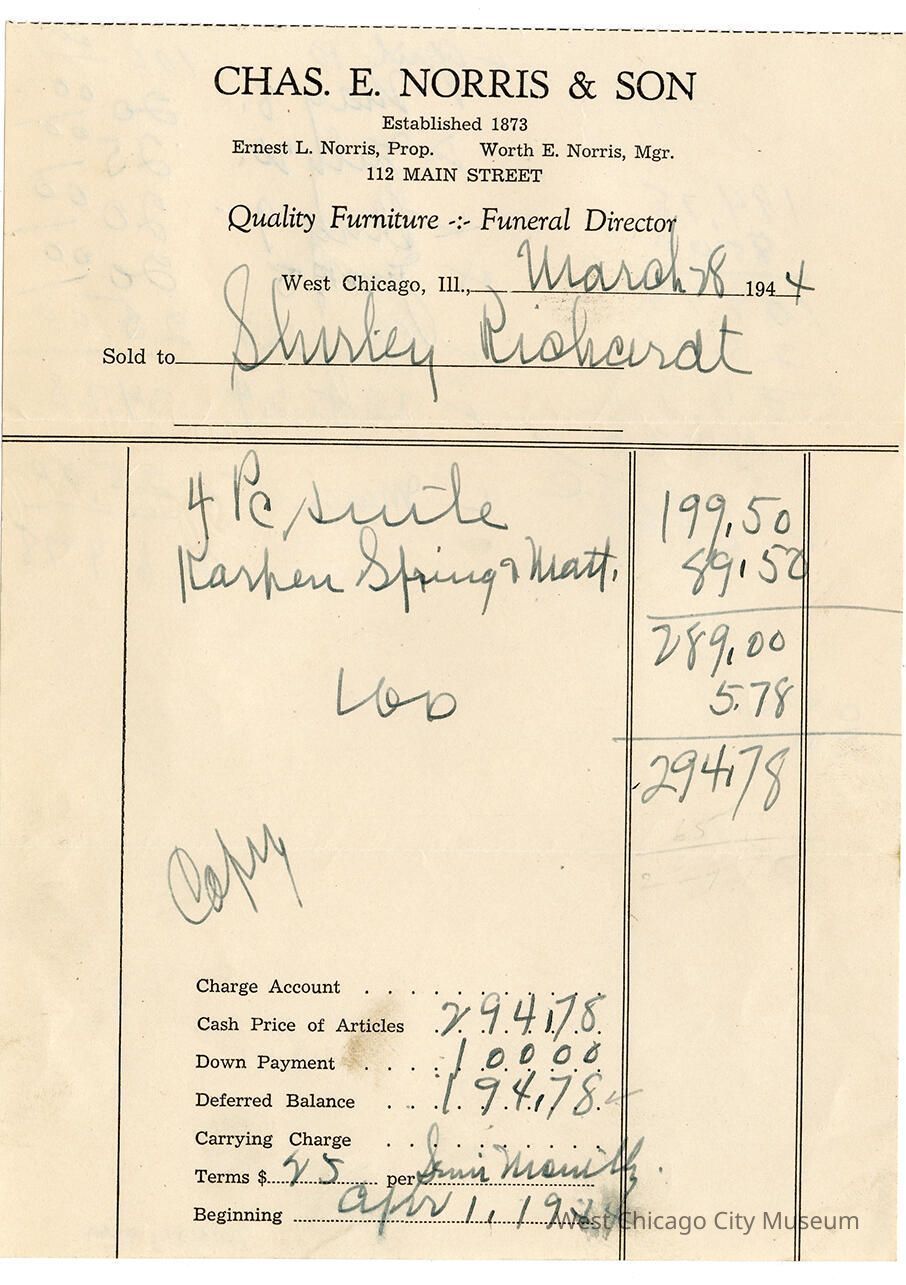 CHAS. E. NORRIS & SON
Established 1873
Ernest L. Norris, Prop. Worth E. Norris, Mgr.
112 MAIN STREET
Quality Furniture -:- Funeral Director
West Chicago, Ill., March 28 1944
Sold to Shirley Richardt
4 Pc suite 199.50
Karpen Spring & Matt. 89.50
289.00
100 5.78
294.78
Copy
Charge Account
Cash Price of Articles 294.78
Down Payment 100 00
Deferred Balance 194.78
Carrying Charge
Terms $ 25 per Semi Monthly.
Beginning Apr 1, 1944
West Chicago City Museum